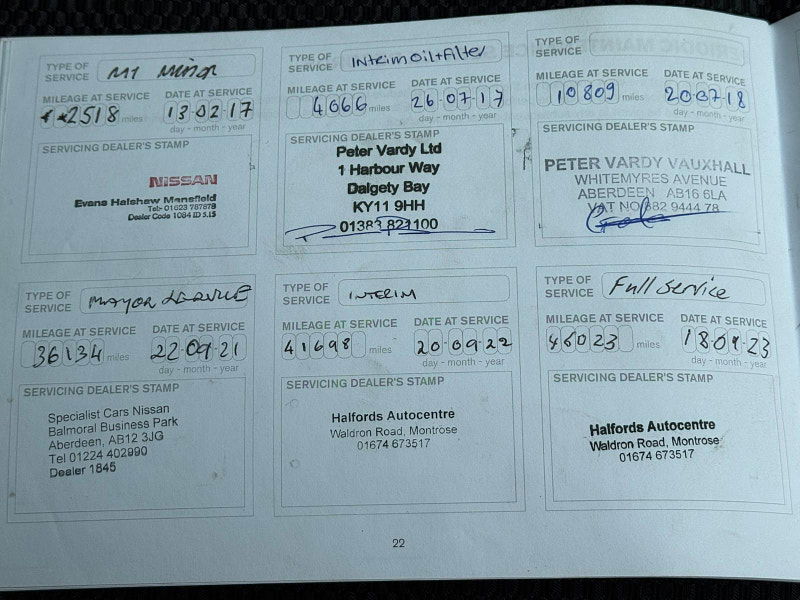 TYPE OF SERVICE M1 Minor
MILEAGE AT SERVICE DATE AT SERVICE
2518 miles 13-02-17
day - month - year
SERVICING DEALER'S STAMP
NISSAN
Evans Halshaw Mansfield
Tel:- 01623 787878
Dealer Code 1084 ID 5.15
TYPE OF SERVICE Interim Oil+Filter
MILEAGE AT SERVICE DATE AT SERVICE
4666 miles 26-07-17
day - month - year
SERVICING DEALER'S STAMP
Peter Vardy Ltd
1 Harbour Way
Dalgety Bay
KY11 9HH
01383 821100
TYPE OF SERVICE
MILEAGE AT SERVICE DATE AT SERVICE
10809 miles 20-07-18
day - month - year
SERVICING DEALER'S STAMP
PETER VARDY VAUXHALL
WHITEMYRES AVENUE
ABERDEEN AB16 6LA
VAT NO 882 9444 78
TYPE OF SERVICE MAYOR SERVICE
MILEAGE AT SERVICE DATE AT SERVICE
36134 miles 22-09-21
day - month - year
SERVICING DEALER'S STAMP
Specialist Cars Nissan
Balmoral Business Park
Aberdeen, AB12 3JG
Tel 01224 402990
Dealer 1845
TYPE OF SERVICE INTERIM
MILEAGE AT SERVICE DATE AT SERVICE
41698 miles 20-09-22
day - month - year
SERVICING DEALER'S STAMP
Halfords Autocentre
Waldron Road, Montrose
01674 673517
TYPE OF SERVICE Full Service
MILEAGE AT SERVICE DATE AT SERVICE
46023 miles 18-09-23
day - month - year
SERVICING DEALER'S STAMP
Halfords Autocentre
Waldron Road, Montrose
01674 673517
22